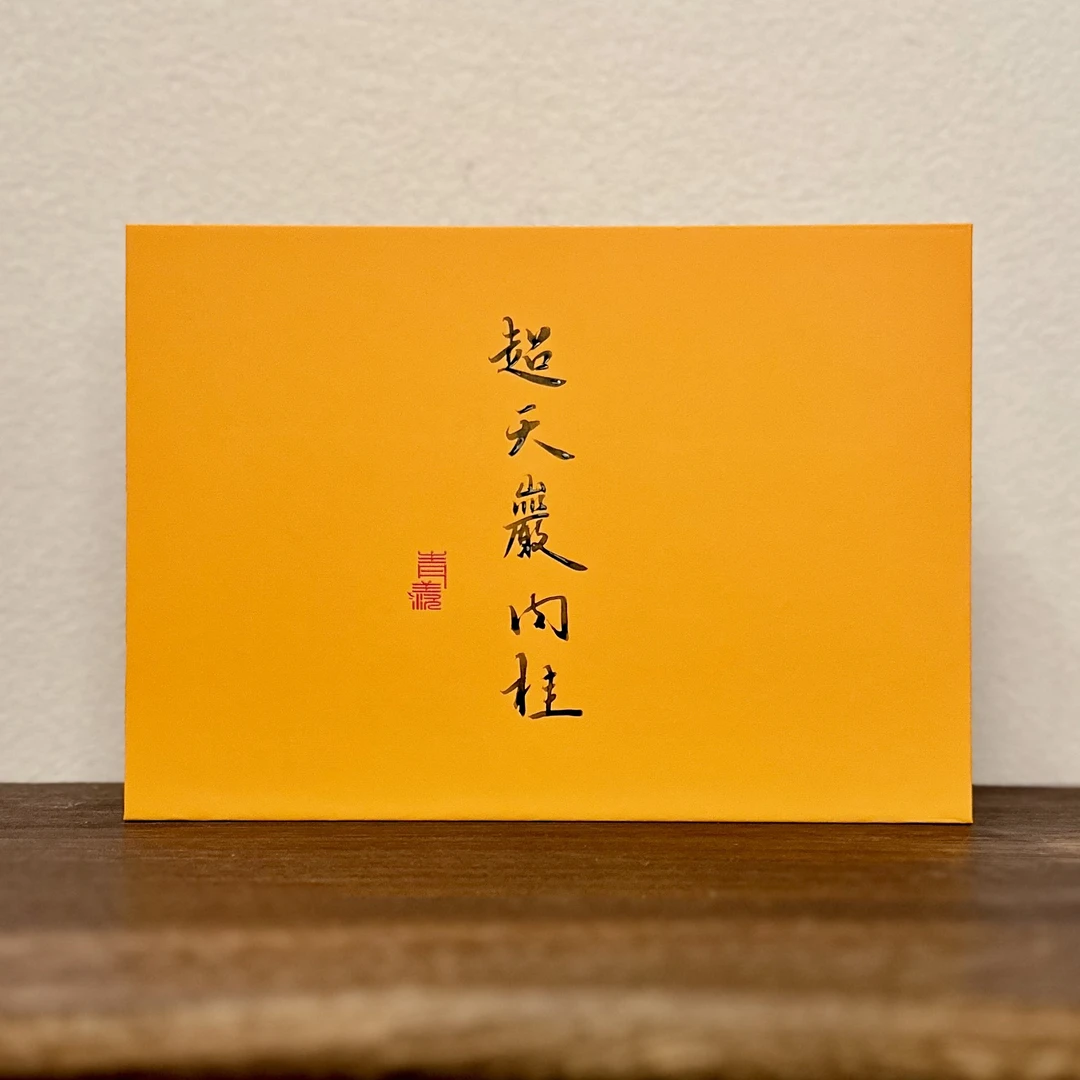 超天巖肉桂